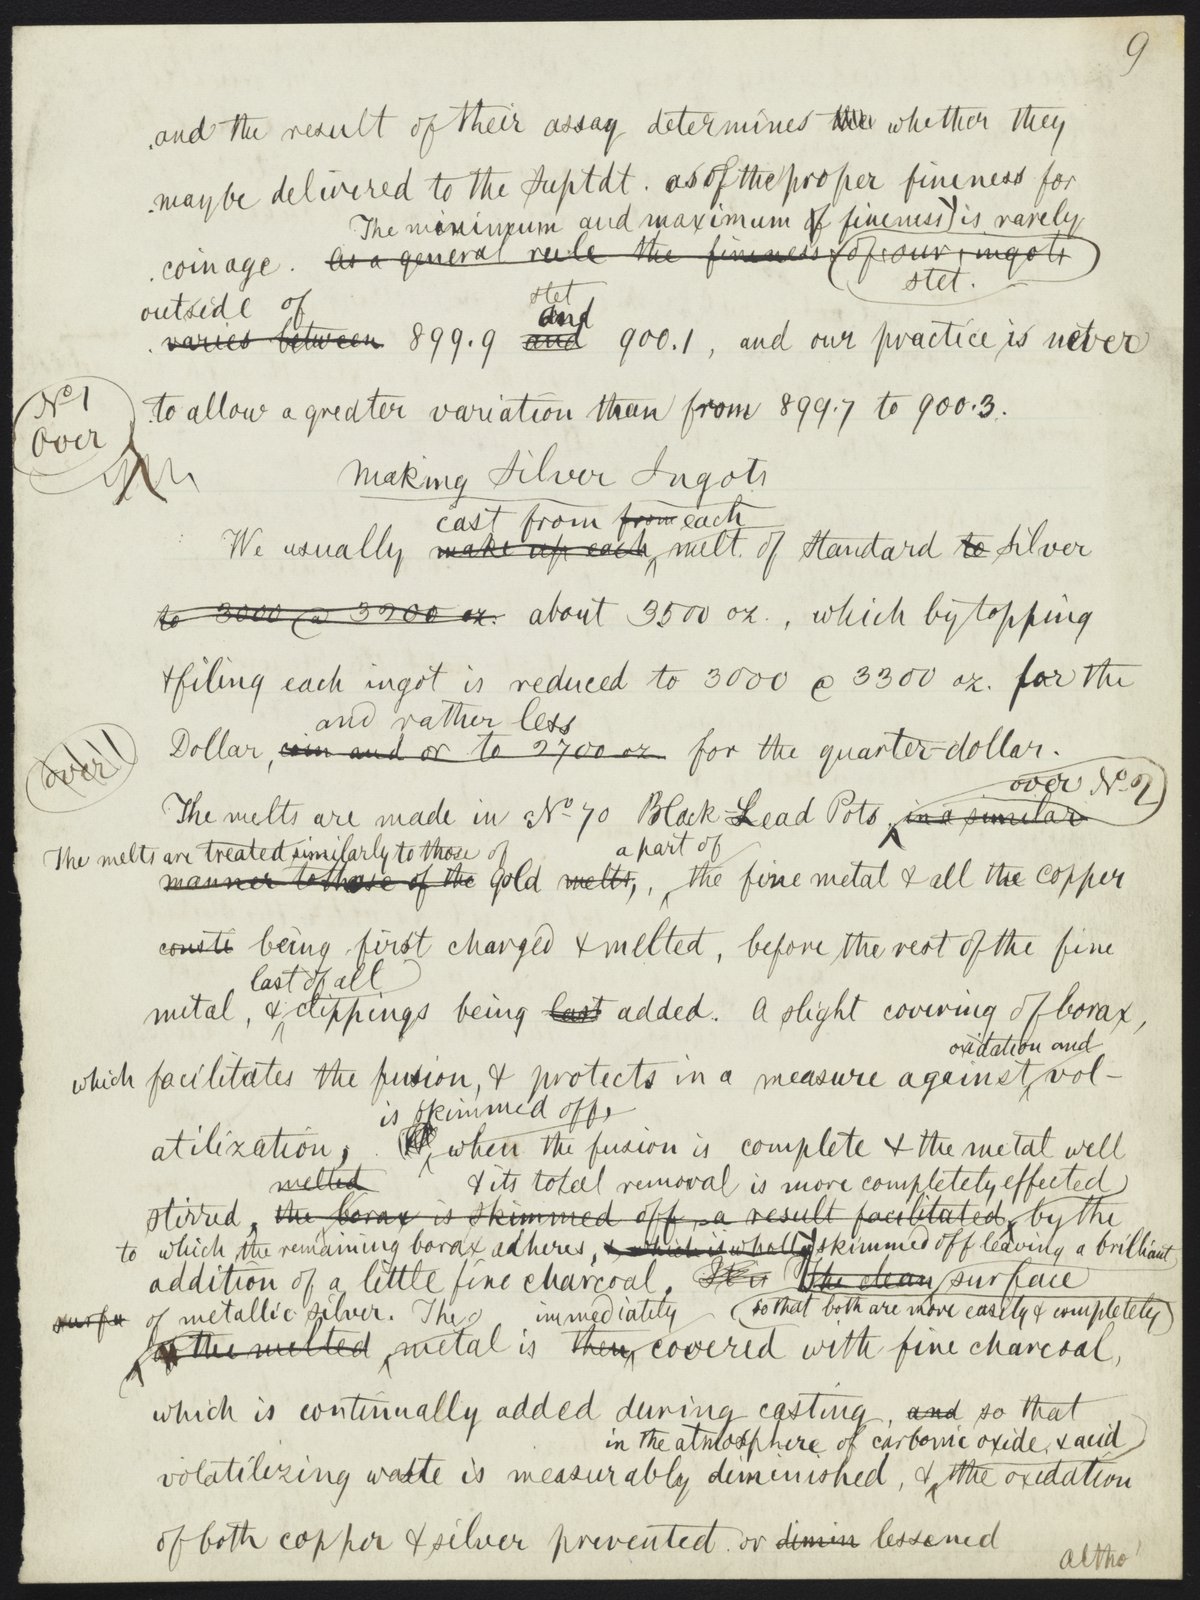 9
and the result of their assay determines the whether they
may be delivered to the Suptdt. as of the proper fineness for
The minimum and maximum of fineness is rarely
coinage. As a general rule the fineness of our ingots
stet.
outside of stet and
varies between 899.9 and 900.1, and our practice is never
No 1
Over
to allow a greater variation than from 899.7 to 900.3.
Making Silver Ingots
cast from from each
We usually make up each melt of Standard to Silver
to 3000 @ 3200 oz. about 3500 oz., which by topping
& filing each ingot is reduced to 3000 @ 3300 oz. for the
and rather less
Dollar, coin and or to 2700 oz for the quarter-dollar.
over
over No 2
The melts are made in No 70 Black Lead Pots, in a similar
The melts are treated similarly to those of a part of
manner to those of the gold melts, the fine metal & all the copper
being first charged & melted, before the rest of the fine
last of all
metal, & clippings being last added. A slight covering of borax,
oxidation and
which facilitates the fusion, & protects in a measure against vol-
is skimmed off,
atilization, when the fusion is complete & the metal well
melted & its total removal is more completely effected
stirred, the borax is skimmed off, a result facilitated, by the
to which the remaining borax adheres, & which is wholly skimmed off leaving a brilliant
addition of a little fine charcoal, It is the clean surface
surfa of metallic silver. The immediately so that both are more easily & completely
the melted metal is then covered with fine charcoal,
which is continually added during casting, and so that
in the atmosphere of carbonic oxide & acid
volatilizing waste is measurably diminished, & the oxidation
of both copper & silver prevented or dimin lessened
altho'